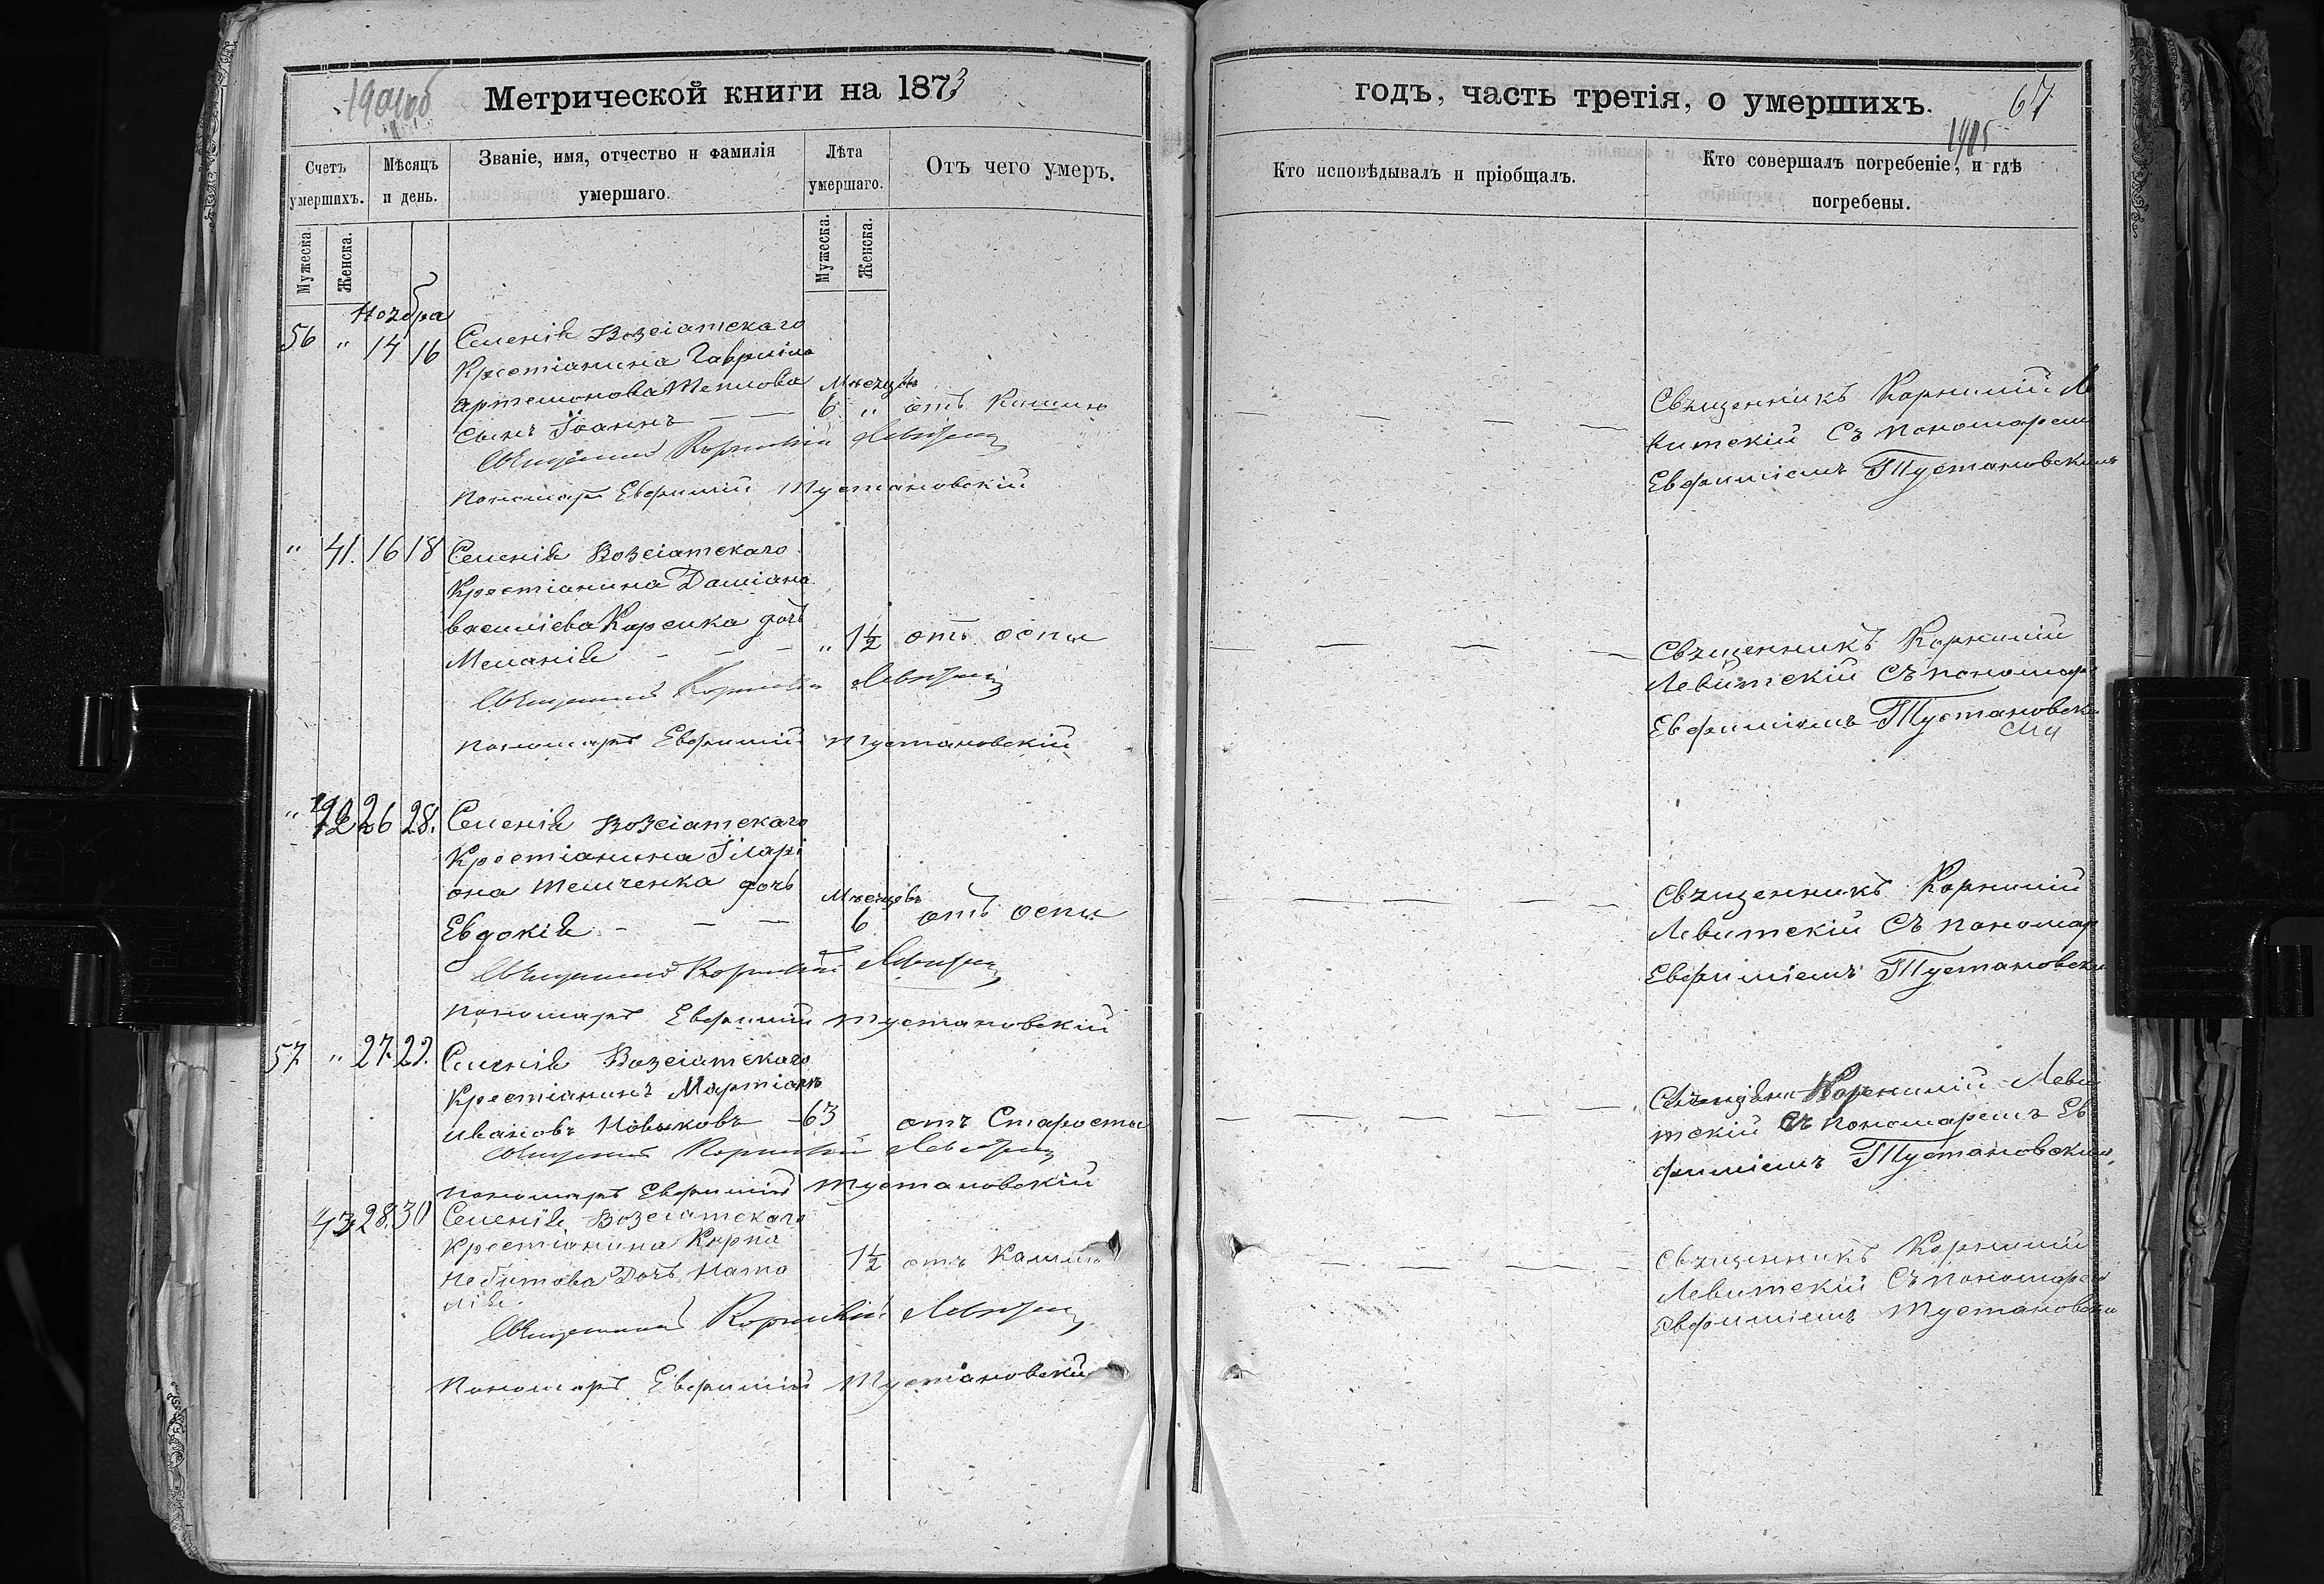 Метрической книги на 1873
Счетъ умершихъ.
Мѣсяцъ и день.
Званіе, имя, отчество и фамилія умершаго.
Лѣта умершаго.
Отъ чего умеръ.
Мужеска.
Женска.
Мужеска.
Женска.
Ноября
56 " 14 16 Селенія Возсіатскаго
Крестіанина Гавріила
Артемонова
сынъ Іоаннъ — —
Мѣсяцовъ
6 " отъ Кашлю
Священникъ Корнилій Левитскій
Пономарь Евфимій Тустановскій
" 41. 16 18 Селенія Возсіатскаго
Крестіанина Даміана
Василіева дочь
Меланія - - -
" 1½ отъ оспы
Священникъ Корнилій Левитскій
Пономарь Евфимій Тустановскій
" 42 26 28. Селенія Возсіатскаго
Крестіанина Іларі
она дочь
Евдокія - — —
Мѣсяцовъ
6 отъ оспы
Священникъ Корнилій Левитскій
Пономарь Евфимій Тустановскій
57 " 27. 29. Селенія Возсіатскаго
Крестіанинъ
Ивановъ Новиковъ - 63 отъ Старости
Священникъ Корнилій Левитскій
Пономарь Евфимій Тустановскій
43 28. 30 Селенія Возсіатскаго
Крестіанина Карпа
Дочь Ната
лія
1½ отъ Кашлю
Священникъ Корнилій Левитскій
Пономарь Евфимій Тустановскій
годъ, часть третія, о умершихъ.
67
Кто исповѣдывалъ и пріобщалъ.
Кто совершалъ погребеніе, и гдѣ
погребены.
Священникъ Корнилій Ле
витскій Съ пономарем
Евфиміемъ Тустановскимъ
Священникъ Корнилій
Левитскій Съ пономар
Евфиміемъ Тустановски
мъ
Священникъ Корнилій
Левитскій Съ пономар
Евфиміемъ Тустановски
Корнилій Леви
тскій Съ пономаремъ Ев
фиміемъ Тустановским
Священникъ Корнилій
Левитскій Съ пономарем
Евфиміемъ Тустановски